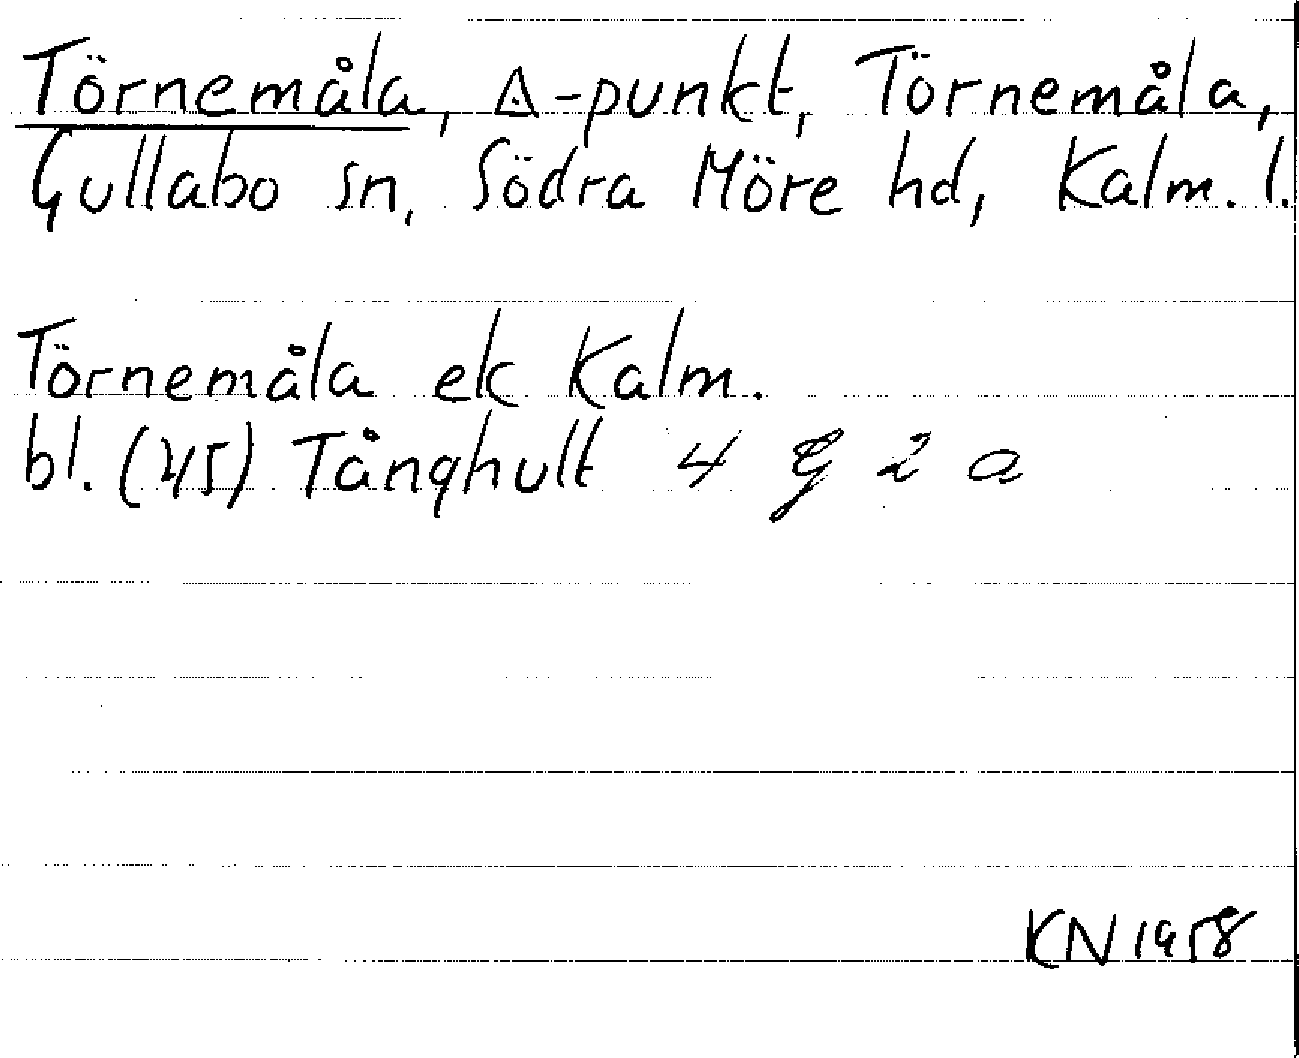 Törnemåla, △-punkt, Törnemåla,
Gullabo sn, Södra Möre hd, Kalm. l.
Törnemåla ek Kalm.
bl. (45) Tånghult 4 G 2 a
KN 1958